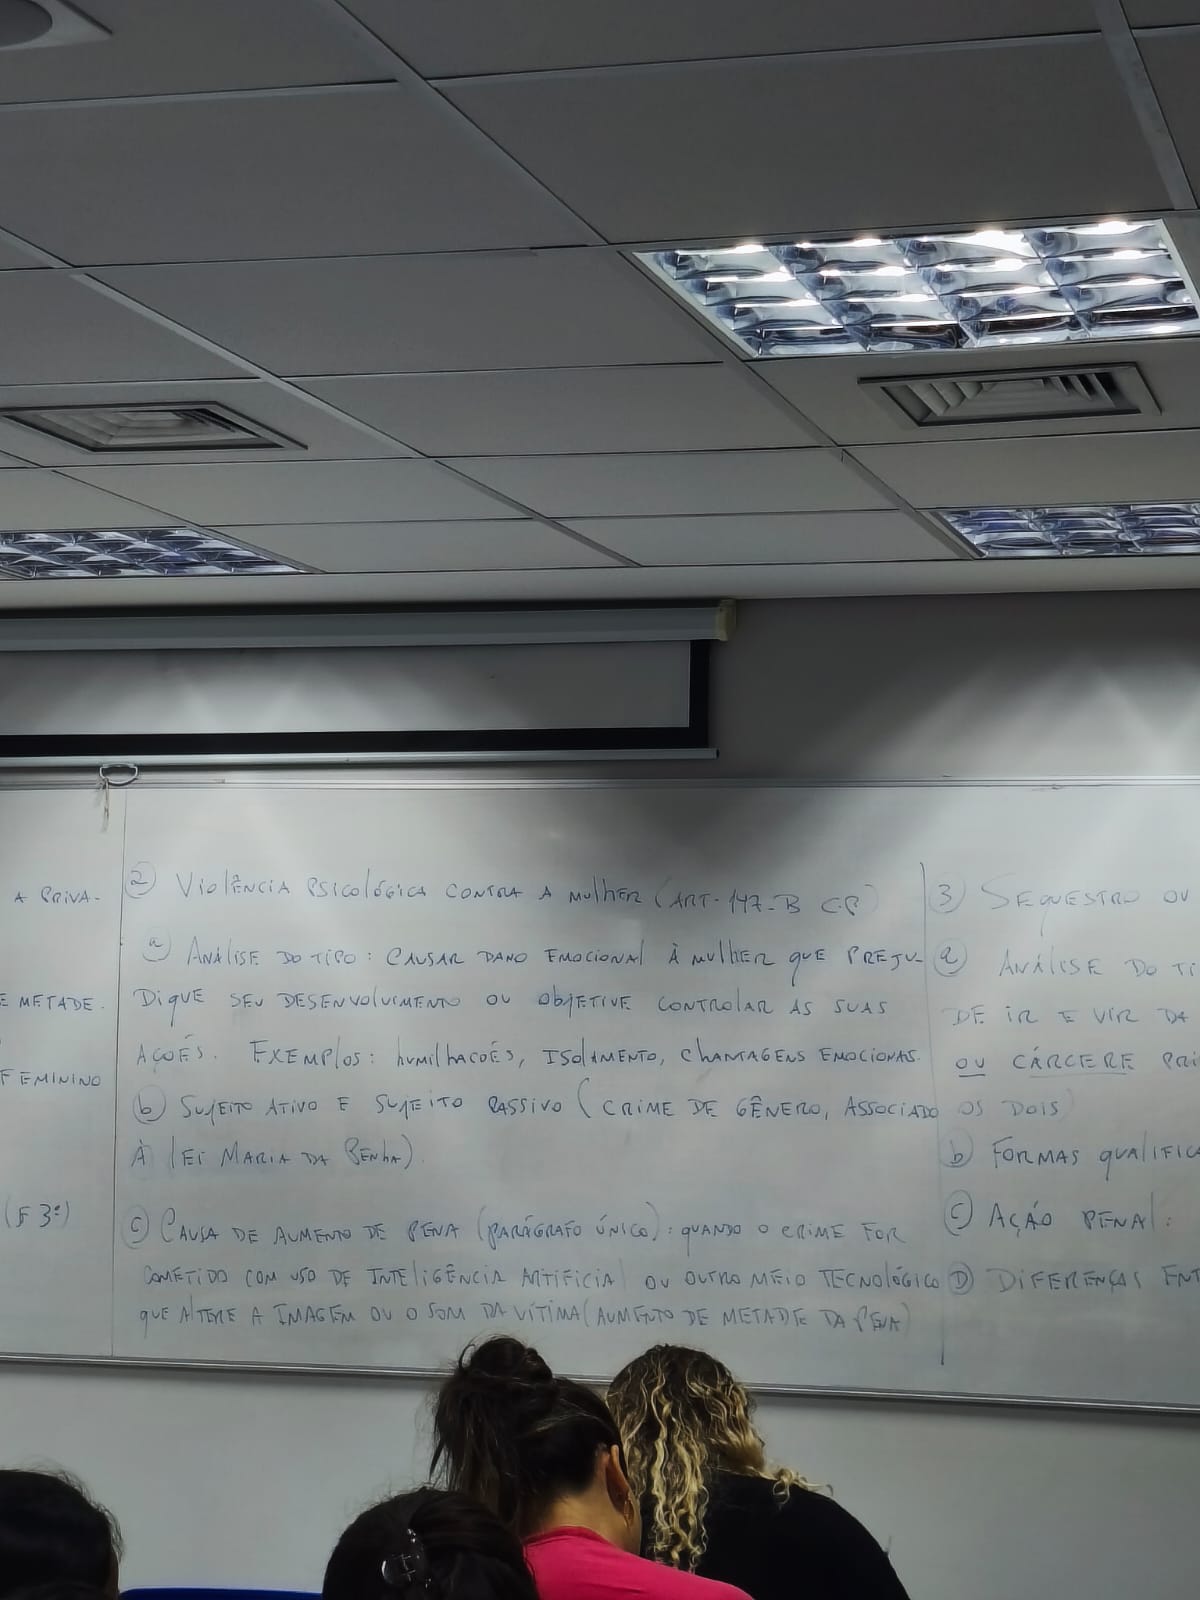 A PRIVA-
E METADE.
FEMININO
(§ 3º)
2 VIOLÊNCIA PSICOLÓGICA CONTRA A MULHER (ART. 147-B CP)
a ANÁLISE DO TIPO: CAUSAR DANO EMOCIONAL À MULHER QUE PREJU-
DIQUE SEU DESENVOLVIMENTO OU OBJETIVE CONTROLAR AS SUAS
AÇOÉS. EXEMPLOS: HUMILHACOÉS, ISOLAMENTO, CHANTAGENS EMOCIONAS.
b SUJEITO ATIVO E SUJEITO PASSIVO (CRIME DE GÊNERO, ASSOCIADO
À LEI MARIA DA PENHA).
C CAUSA DE AUMENTO DE PENA (PARÁGRAFO ÚNICO): QUANDO O CRIME FOR
COMETIDO COM USO DE INTELIGÊNCIA ARTIFICIAL OU OUTRO MEIO TECNOLÓGICO
QUE ALTERE A IMAGEM OU O SOM DA VÍTIMA (AUMENTO DE METADE DA PENA)
3 SEQUESTRO OU
a ANÁLISE DO TI
DE IR E VIR DA
OU CÁRCERE PRI
OS DOIS)
b FORMAS QUALIFICA
C AÇÃO PENAL:
D DIFERENÇAS ENT